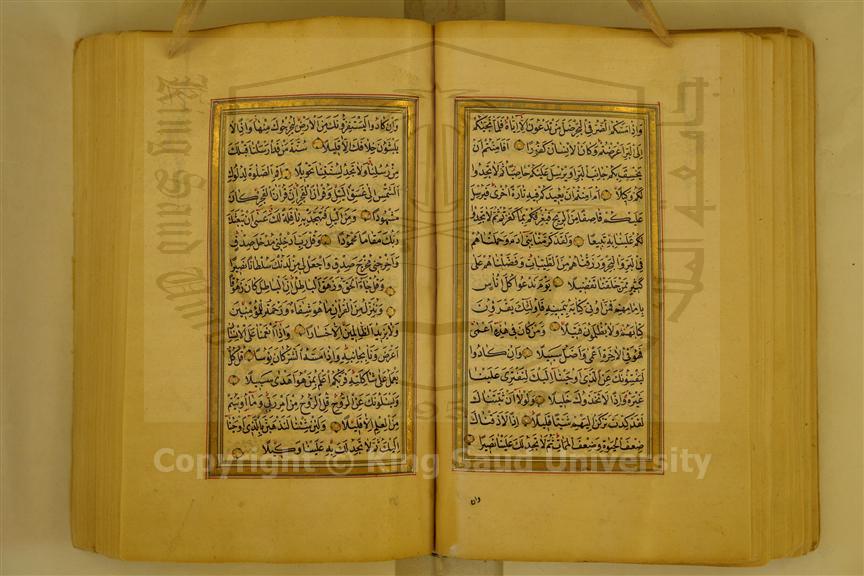 وَاِذَا مَسَّكُمُ الضُّرُّ فِي الْبَحْرِ ضَلَّ مَنْ تَدْعُونَ اِلَّا اِيَّاهُ فَلَمَّا نَجّٰيكُمْ
اِلَى الْبَرِّ اَعْرَضْتُمْ وَكَانَ الْاِنْسَانُ كَفُورًا اَفَاَمِنْتُمْ اَنْ
يَخْسِفَ بِكُمْ جَانِبَ الْبَرِّ اَوْ يُرْسِلَ عَلَيْكُمْ حَاصِبًا ثُمَّ لَا تَجِدُوا
لَكُمْ وَكِيلًا اَمْ اَمِنْتُمْ اَنْ يُعِيدَكُمْ فِيهِ تَارَةً اُخْرٰى فَيُرْسِلَ
عَلَيْكُمْ قَاصِفًا مِنَ الرِّيحِ فَيُغْرِقَكُمْ بِمَا كَفَرْتُمْ ثُمَّ لَا تَجِدُوا
لَكُمْ عَلَيْنَا بِهِ تَبِيعًا وَلَقَدْ كَرَّمْنَا بَنِي اٰدَمَ وَحَمَلْنَاهُمْ
فِي الْبَرِّ وَالْبَحْرِ وَرَزَقْنَاهُمْ مِنَ الطَّيِّبَاتِ وَفَضَّلْنَاهُمْ عَلٰى
كَثِيرٍ مِمَّنْ خَلَقْنَا تَفْضِيلًا يَوْمَ نَدْعُوا كُلَّ اُنَاسٍ
بِاِمَامِهِمْ فَمَنْ اُوتِيَ كِتَابَهُ بِيَمِينِهِ فَاُولٰئِكَ يَقْرَؤُنَ
كِتَابَهُمْ وَلَا يُظْلَمُونَ فَتِيلًا وَمَنْ كَانَ فِي هٰذِهِ اَعْمٰى
فَهُوَ فِي الْاٰخِرَةِ اَعْمٰى وَاَضَلُّ سَبِيلًا وَاِنْ كَادُوا
لَيَفْتِنُونَكَ عَنِ الَّذِي اَوْحَيْنَا اِلَيْكَ لِتَفْتَرِيَ عَلَيْنَا
غَيْرَهُ وَاِذًا لَاتَّخَذُوكَ خَلِيلًا وَلَوْلَا اَنْ ثَبَّتْنَاكَ
لَقَدْ كِدْتَ تَرْكَنُ اِلَيْهِمْ شَيْئًا قَلِيلًا اِذًا لَاَذَقْنَاكَ
ضِعْفَ الْحَيٰوةِ وَضِعْفَ الْمَمَاتِ ثُمَّ لَا تَجِدُ لَكَ عَلَيْنَا نَصِيرًا
وان
وَاِنْ كَادُوا لَيَسْتَفِزُّونَكَ مِنَ الْاَرْضِ لِيُخْرِجُوكَ مِنْهَا وَاِذًا لَا
يَلْبَثُونَ خِلَافَكَ اِلَّا قَلِيلًا سُنَّةَ مَنْ قَدْ اَرْسَلْنَا قَبْلَكَ
مِنْ رُسُلِنَا وَلَا تَجِدُ لِسُنَّتِنَا تَحْوِيلًا اَقِمِ الصَّلٰوةَ لِدُلُوكِ
الشَّمْسِ اِلٰى غَسَقِ الَّيْلِ وَقُرْاٰنَ الْفَجْرِ اِنَّ قُرْاٰنَ الْفَجْرِ كَانَ
مَشْهُودًا وَمِنَ الَّيْلِ فَتَهَجَّدْ بِهِ نَافِلَةً لَكَ عَسٰى اَنْ يَبْعَثَكَ
رَبُّكَ مَقَامًا مَحْمُودًا وَقُلْ رَبِّ اَدْخِلْنِي مُدْخَلَ صِدْقٍ
وَاَخْرِجْنِي مُخْرَجَ صِدْقٍ وَاجْعَلْ لِي مِنْ لَدُنْكَ سُلْطَانًا نَصِيرًا
وَقُلْ جَاءَ الْحَقُّ وَزَهَقَ الْبَاطِلُ اِنَّ الْبَاطِلَ كَانَ زَهُوقًا
وَنُنَزِّلُ مِنَ الْقُرْاٰنِ مَا هُوَ شِفَاءٌ وَرَحْمَةٌ لِلْمُؤْمِنِينَ
وَلَا يَزِيدُ الظَّالِمِينَ اِلَّا خَسَارًا وَاِذَا اَنْعَمْنَا عَلَى الْاِنْسَانِ
اَعْرَضَ وَنَاٰ بِجَانِبِهِ وَاِذَا مَسَّهُ الشَّرُّ كَانَ يَؤُسًا قُلْ كُلٌّ
يَعْمَلُ عَلٰى شَاكِلَتِهِ فَرَبُّكُمْ اَعْلَمُ بِمَنْ هُوَ اَهْدٰى سَبِيلًا
وَيَسْئَلُونَكَ عَنِ الرُّوحِ قُلِ الرُّوحُ مِنْ اَمْرِ رَبِّي وَمَا اُوتِيتُمْ
مِنَ الْعِلْمِ اِلَّا قَلِيلًا وَلَئِنْ شِئْنَا لَنَذْهَبَنَّ بِالَّذِي اَوْحَيْنَا
اِلَيْكَ ثُمَّ لَا تَجِدُ لَكَ بِهِ عَلَيْنَا وَكِيلًا
Copyright © King Saud University
King Saud University
جامعة الملك سعود